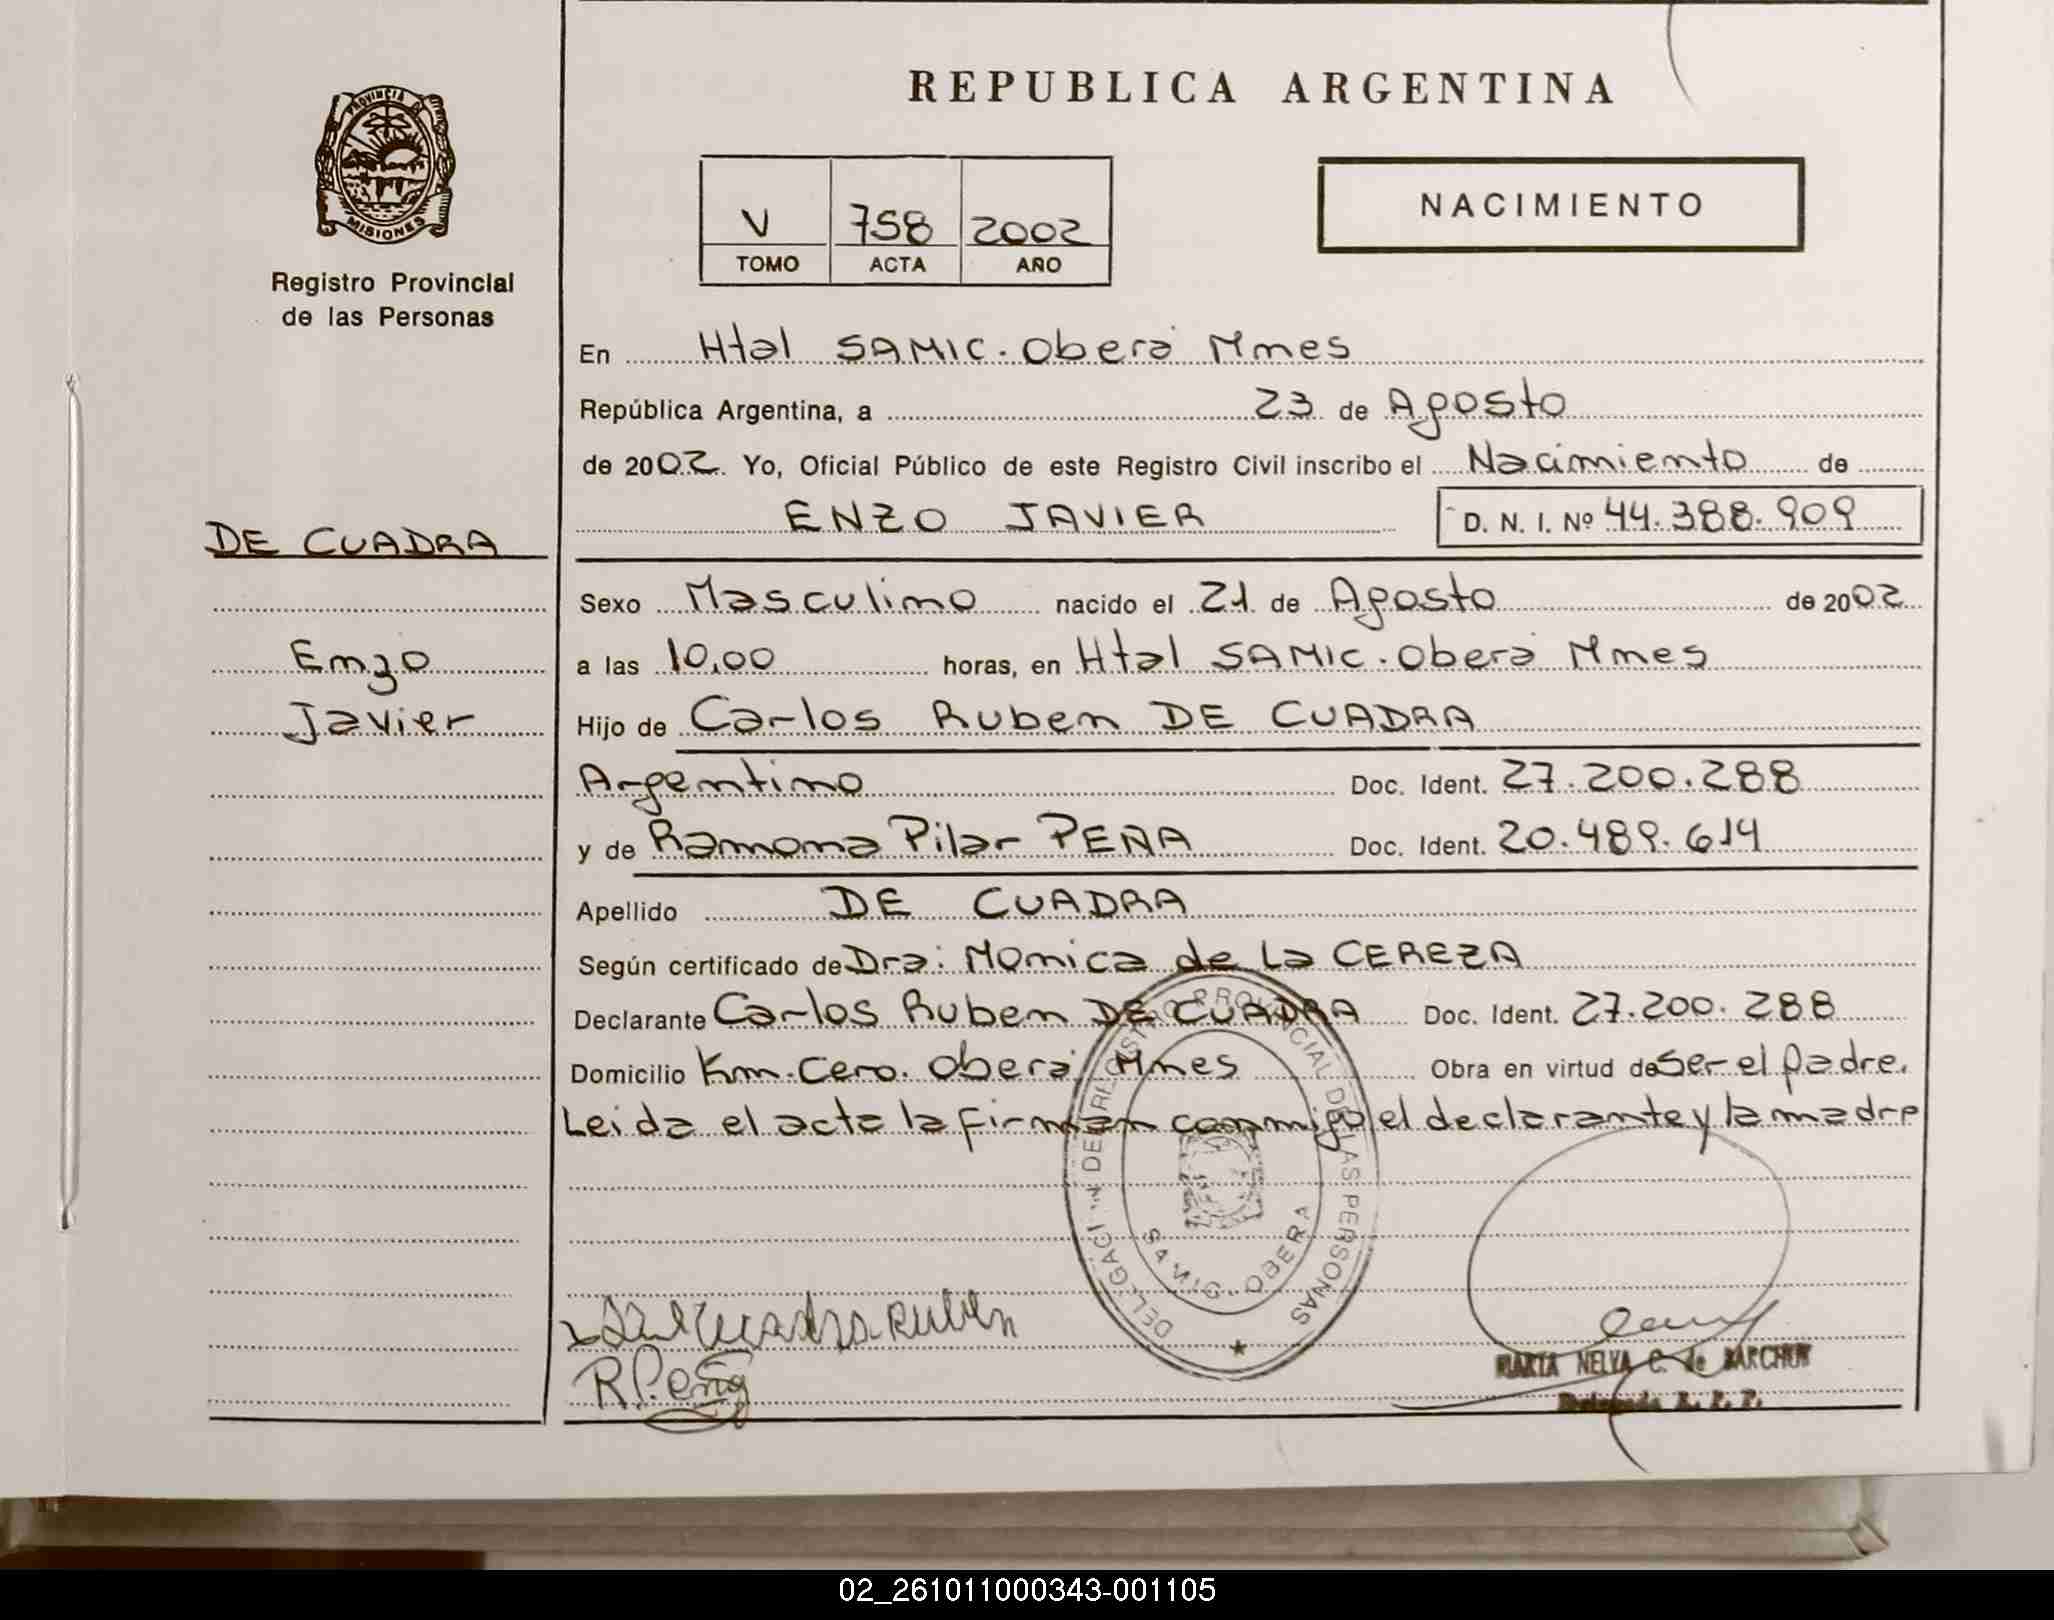 REPUBLICA ARGENTINA
PROVINCIA DE
MISIONES
Registro Provincial
de las Personas
V 758 2002
TOMO ACTA AÑO
NACIMIENTO
En Htal SAMIC. Oberá Mnes
República Argentina, a 23 de Agosto
de 2002 Yo, Oficial Público de este Registro Civil inscribo el Nacimiento de
ENZO JAVIER D. N. I. Nº 44.388.909
DE CUADRA
Enzo
Javier
Sexo Masculino nacido el 21 de Agosto de 2002
a las 10,00 horas, en Htal SAMIC. Oberá Mnes
Hijo de Carlos Ruben DE CUADRA
Argentino Doc. Ident. 27.200.288
y de Ramona Pilar PEÑA Doc. Ident. 20.489.614
Apellido DE CUADRA
Según certificado de Dra: Monica de La CEREZA
Declarante Carlos Ruben DE CUADRA Doc. Ident. 27.200.288
Domicilio Km. Cero. Oberá Mnes Obra en virtud de Ser el padre.
Leida el acta la firman conmigo el declarante y la madre
DELEGACION DEL REGISTRO PROVINCIAL DE LAS PERSONAS
SAMIC - OBERA
Cuadra Ruben
R P. eña
MARTA NELVA C. de BARCHUK
Delegada R. P. P.
02_261011000343-001105